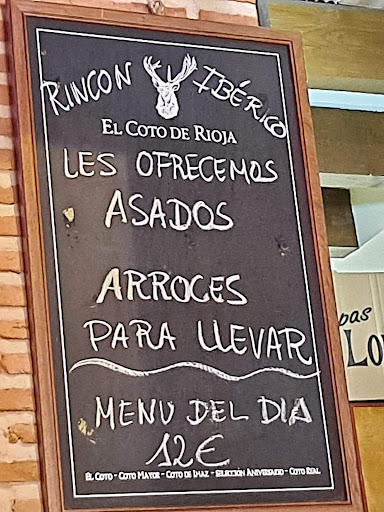 RINCON IBÉRICO
EL COTO DE RIOJA
LES OFRECEMOS
ASADOS
ARROCES
PARA LLEVAR
MENU DEL DIA
12€
EL COTO - COTO MAYOR - COTO DE IMAZ - SELECCIÓN ANIVERSARIO - COTO REAL
pas
Lo